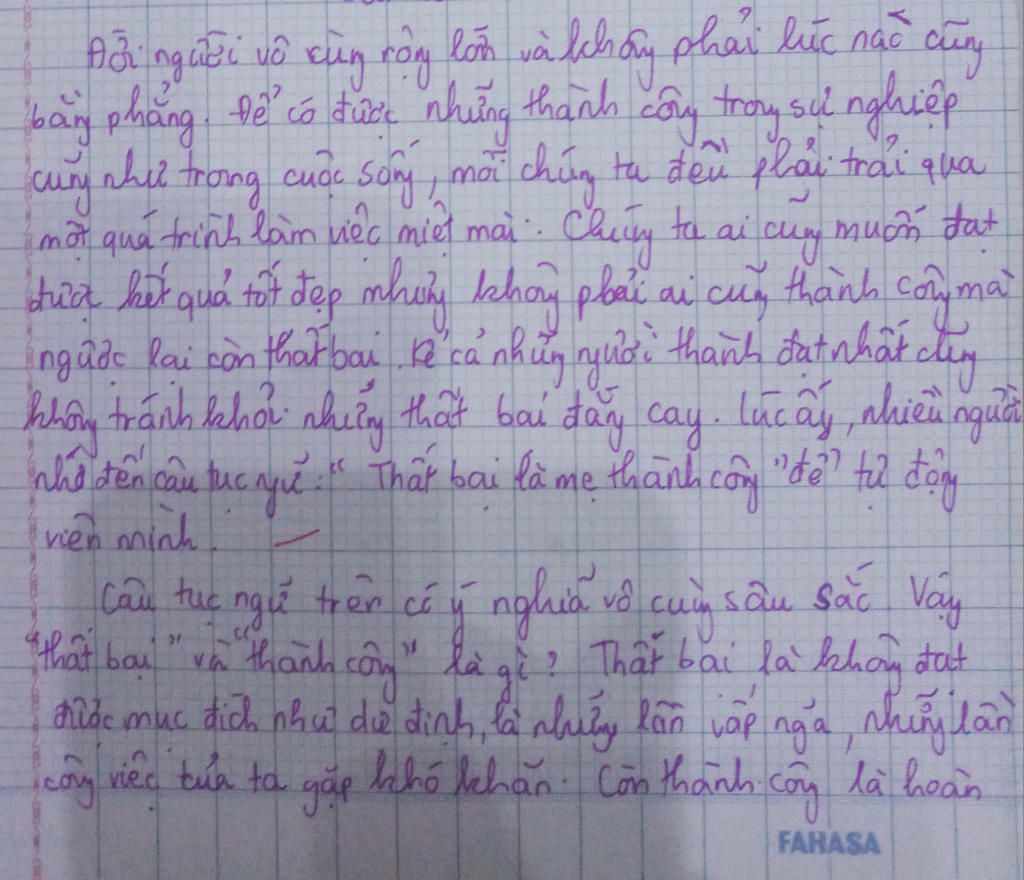 Đời người vô cùng rộng lớn và không phải lúc nào cũng
bằng phẳng. Để có được những thành công trong sự nghiệp
cũng như trong cuộc sống, mỗi chúng ta đều phải trải qua
một quá trình làm việc miệt mài. Chúng ta ai cũng muốn đạt
được kết quả tốt đẹp nhưng không phải ai cũng thành công mà
ngược lại còn thất bại. Kể cả những người thành đạt nhất cũng
không tránh khỏi những thất bại đắng cay. Lúc ấy, nhiều người
nhớ đến câu tục ngữ: "Thất bại là mẹ thành công" để tự động
viên mình.
Câu tục ngữ trên có ý nghĩa vô cùng sâu sắc. Vậy
"thất bại" và "thành công" là gì? Thất bại là không đạt
được mục đích như dự định, là những lần vấp ngã, những lần
công việc của ta gặp khó khăn. Còn thành công là hoàn
FAHASA